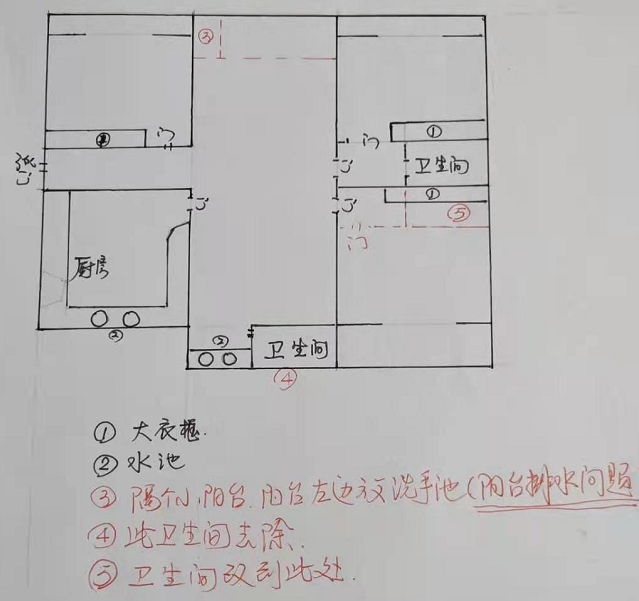 ③
门
①
②
门
门
卫生间
门
门
门
①
⑤
厨房
门
②
②
卫生间
④
① 大衣柜.
② 水池
③ 隔个小阳台.阳台左边放洗手池(阳台排水问题
④ 此卫生间去除.
⑤ 卫生间改到此处.